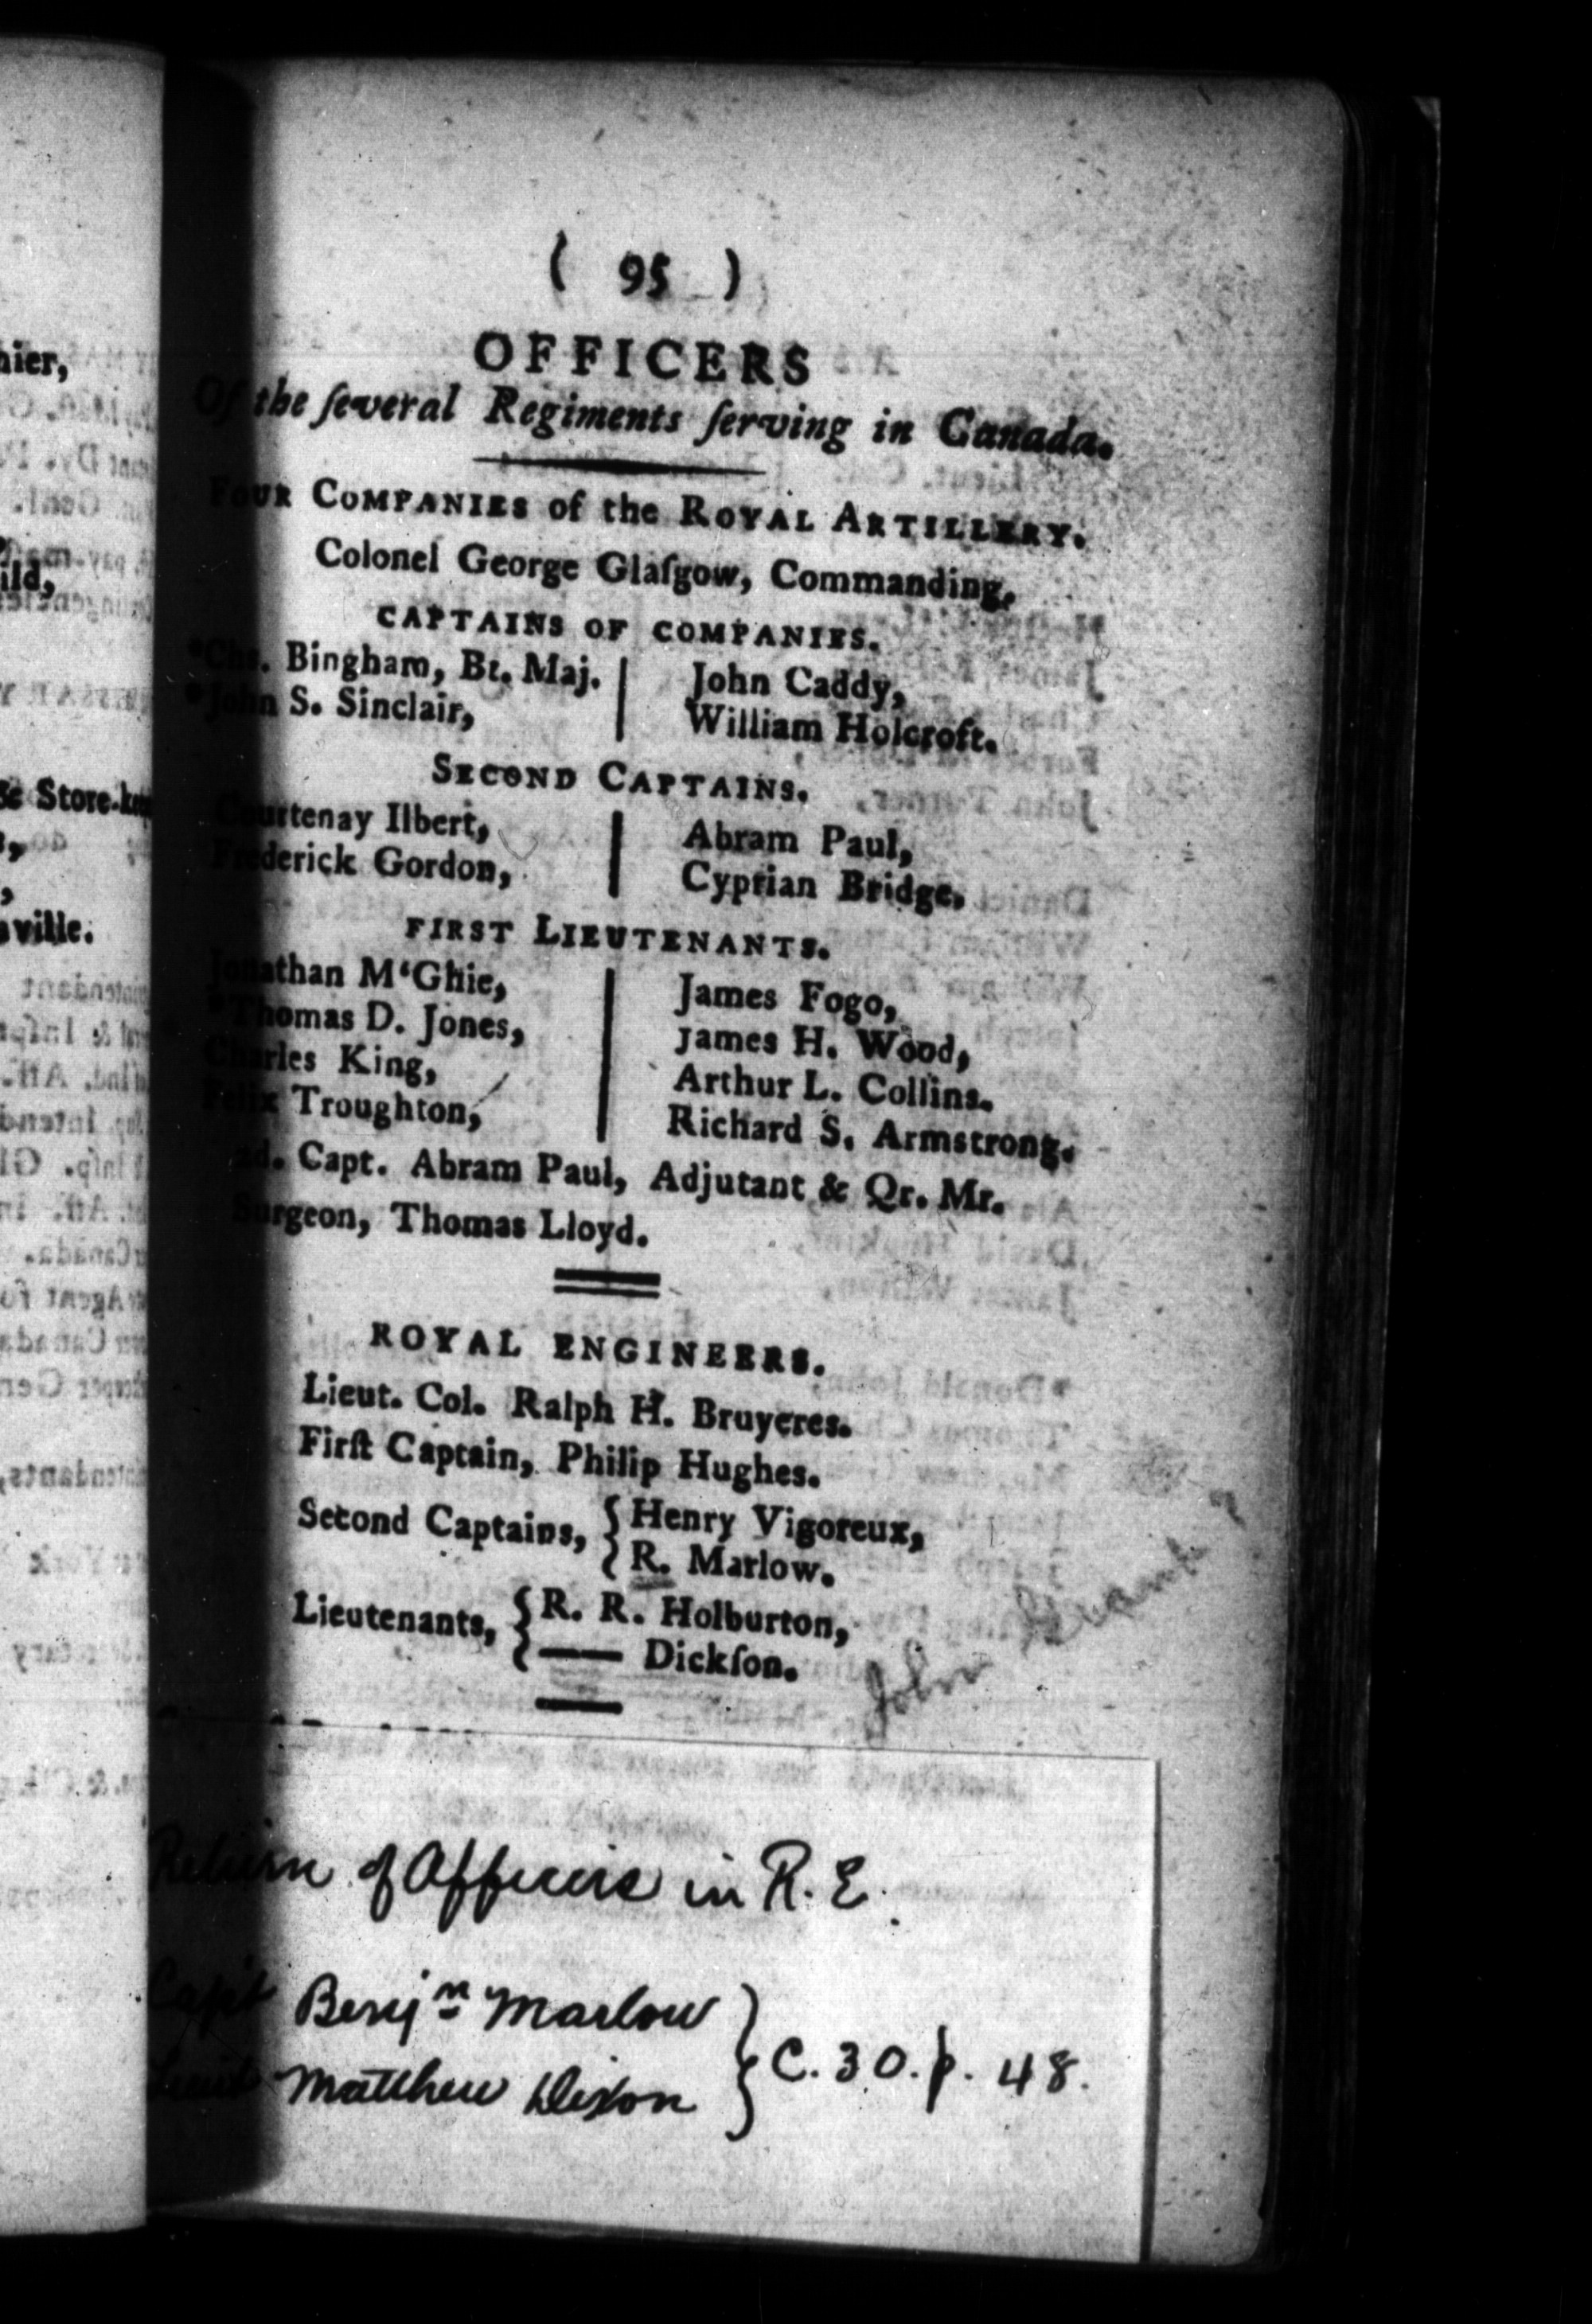 ( 95 )
OFFICERS
Of the ſeveral Regiments ſerving in Canada.
FOUR COMPANIES of the ROYAL ARTILLERY.
Colonel George Glaſgow, Commanding.
CAPTAINS OF COMPANIES.
*Chs. Bingham, Bt. Maj. | John Caddy,
*John S. Sinclair, | William Holcroft.
SECOND CAPTAINS.
Courtenay Ilbert, | Abram Paul,
Frederick Gordon, | Cyprian Bridge.
FIRST LIEUTENANTS.
Jonathan M'Ghie, | James Fogo,
*Thomas D. Jones, | James H. Wood,
Charles King, | Arthur L. Collins.
Felix Troughton, | Richard S. Armstrong.
2d. Capt. Abram Paul, Adjutant & Qr. Mr.
Surgeon, Thomas Lloyd.
ROYAL ENGINEERS.
Lieut. Col. Ralph H. Bruyeres.
Firſt Captain, Philip Hughes.
Second Captains, { Henry Vigoreux,
{ R. Marlow.
Lieutenants, { R. R. Holburton,
{ —— Dickſon.
John Grant ?
Return of Officers in R. E.
Capt Benjn Marlow }
Lieut Matthew Dixon } C. 30. p. 48.
hier,
ild,
& Store-kee
ville.